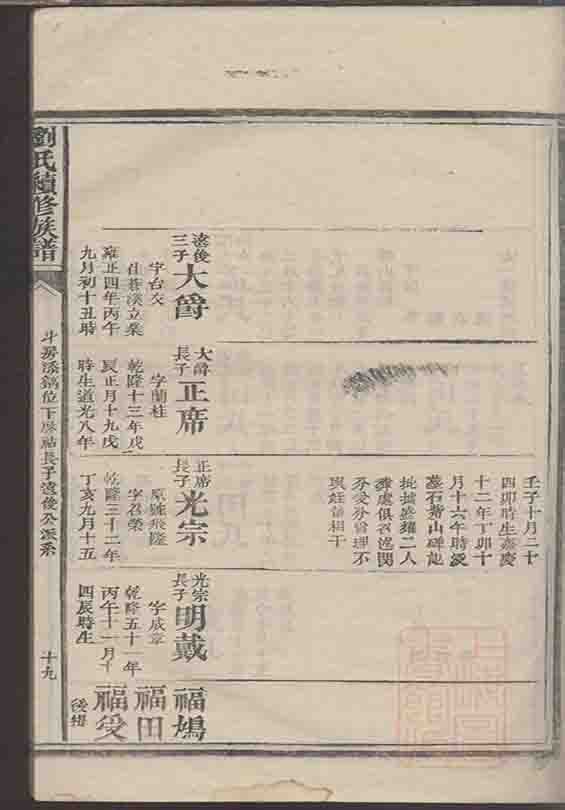 壬子十月二十
四卯時生嘉慶
十二年丁卯十
月十六午時歿
墓石嘴山碑記
批據盛耀二人
葬處俱召逵閔
分受分管理不
與鈺華相干
遠後
三子
大爵
字台交
雍正四年丙午
九月初十丑時
大爵
長子
正席
字蘭桂
乾隆十三年戊
辰正月十九戊
時生道光八年
正席
長子
光宗
原號飛隆
字名榮
乾隆三十二年
丁亥九月十五
光宗
長子
明戴
字成章
乾隆五十一年
丙午十一月十
四辰時生
福鳩
福田
福受
後續
劉氏續修族譜
長子遠俊公派系
十九